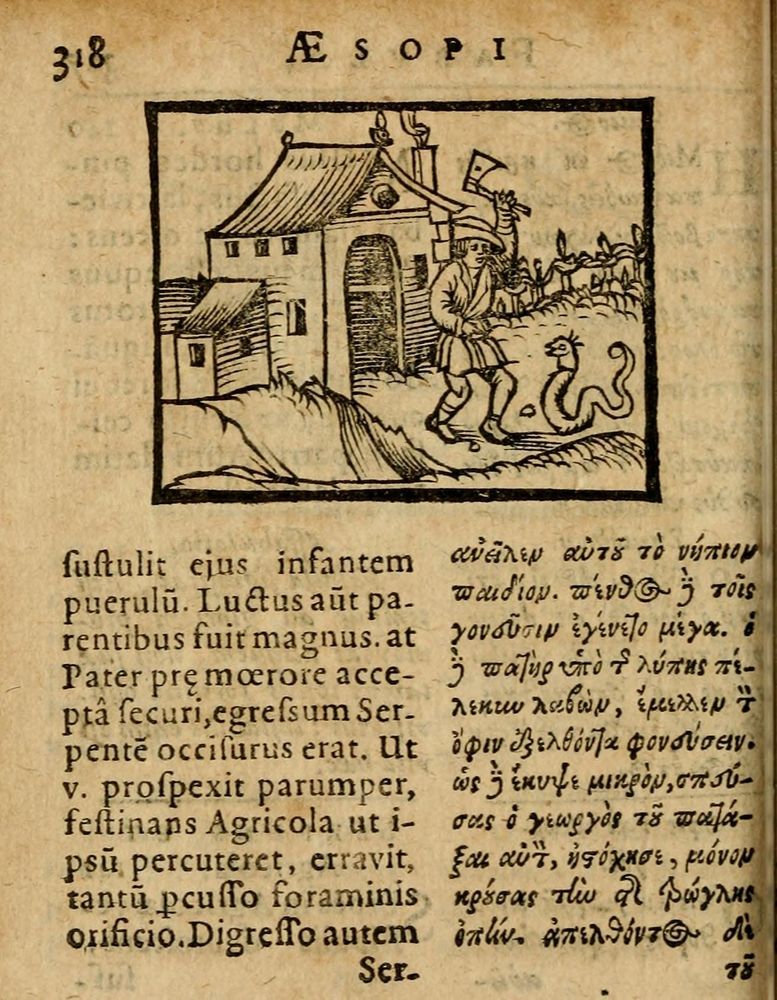 318 ÆSOPI
ſuſtulit ejus infantem
puerulū. Luctus aūt pa-
rentibus fuit magnus. at
Pater prę mœrore acce-
ptâ ſecuri, egreſsum Ser-
pentē occiſurus erat. Ut
v. proſpexit parumper,
feſtinans Agricola ut i-
pſū percuteret, erravit,
tantū ꝑcuſſo foraminis
orificio. Digreſſo autem
Ser-
ἀνεῖλεν αὐτοῦ τὸ νήπιον
παιδίον. πένθος δὲ τοῖς
γονεῦσιν ἐγένετο μέγα. ὁ
δὲ πατὴρ ὑπὸ τῆς λύπης πέ-
λεκυν λαβὼν, ἔμελλεν τὸν
ὄφιν ἐξελθόντα φονεύσειν.
ὡς δὲ ἔκυψε μικρὸν, σπεύ-
σας ὁ γεωργὸς τοῦ πατά-
ξαι αὐτὸν, ἠστόχησε, μόνον
κρούσας τὴν τῆς τρώγλης
ὀπήν. ἀπελθόντος δὲ
τοῦ